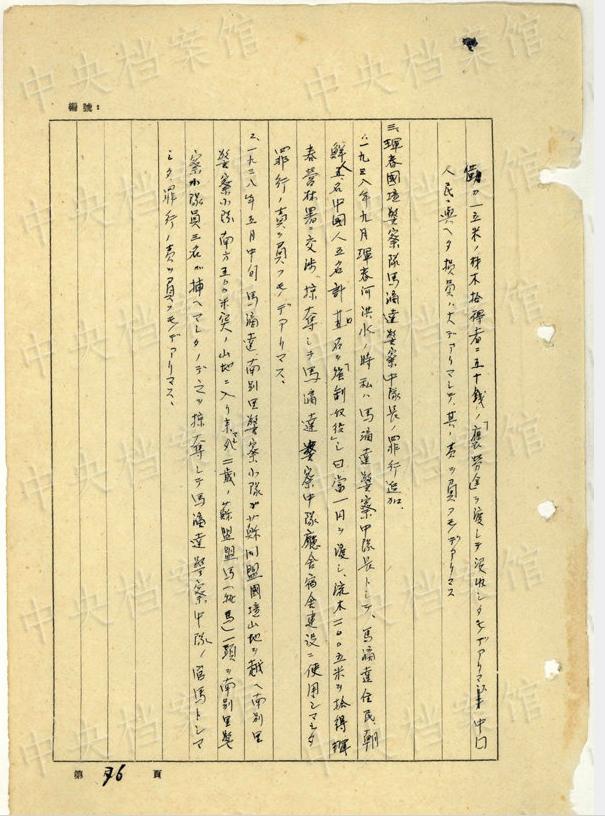 編號：
一立米ノ材木拾得者ニ五十銭ノ「褒労金」ヲ渡シテ没收シタモノデアリマシテ中国
人民ニ與ヘタ損員ハ大デアリマシテ、其ノ責ヲ員フモノデアリマス
三、琿春國境警察隊馬滴達警察中隊長ノ罪行追加、
一九三八年九月琿春河洪水ノ時私ハ馬滴達警察中隊長トシテ、馬滴達住民、朝
鮮人 名中國人五名計 名ヲ「強制奴役」シ日當一円ヲ渡シ、流木二〇〇立米ヲ拾得琿
春営林署ニ交渉、掠奪シテ馬滴達警察中隊廳舎宿舍建設ニ使用シマシタ
罪行ノ責ヲ員フモノデアリマス、
2、一九三八年五月中旬馬滴達、南別里警察小隊 蘇同盟國境山地ヲ越ヘ南別里
警察小隊南方五〇〇米突ノ山地ニ入リ来タ 二歳ノ蘇聯盟馬（牝馬）一頭ヲ南別里警
察小隊員三名ガ捕ヘマシタノデ之ヲ掠奪シテ馬滴達警察中隊ノ官馬トシマ
シタ罪行ノ責ヲ員フモノデアリマス、
第 76 頁
中央档案馆